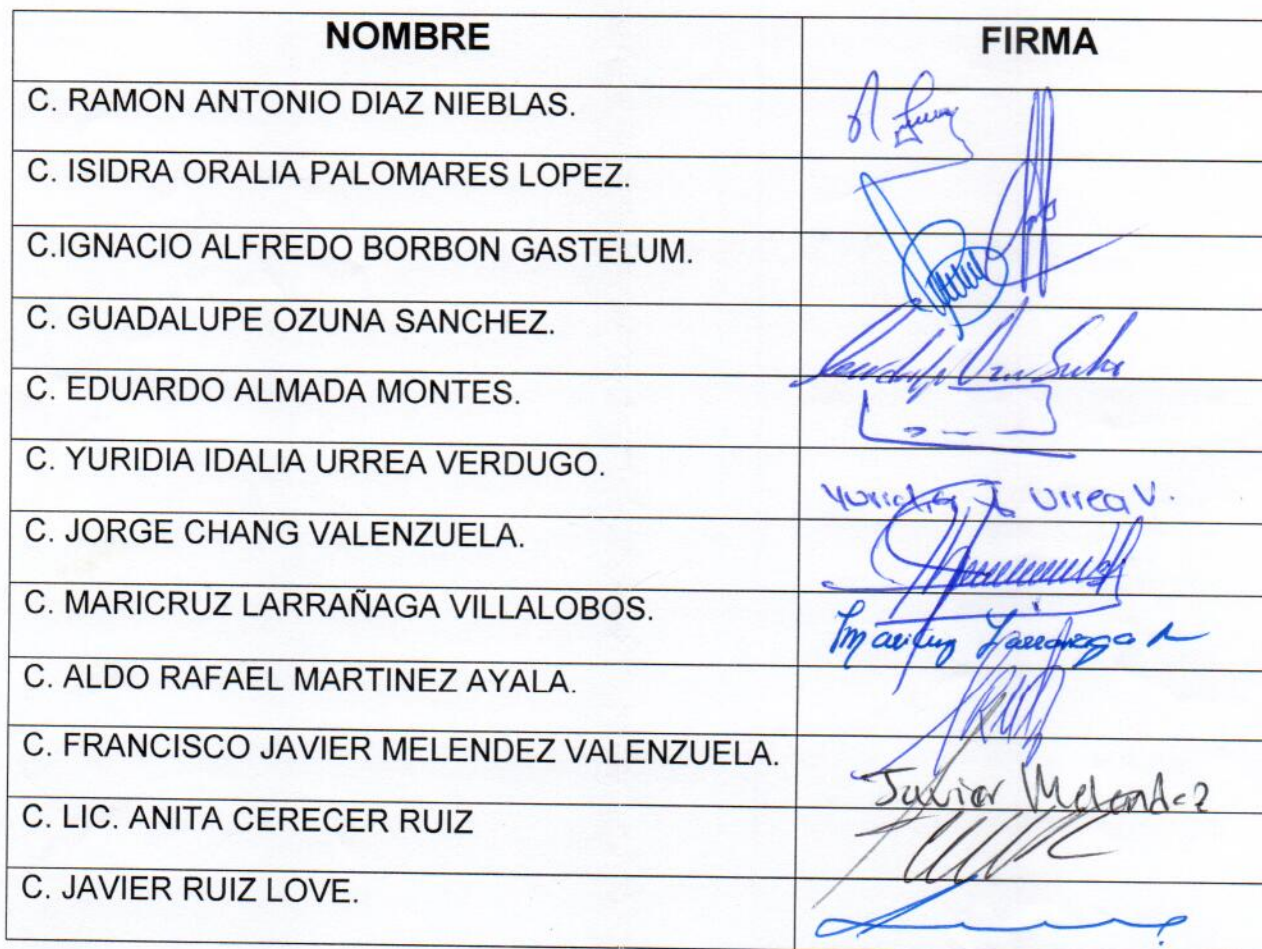 NOMBRE FIRMA
C. RAMON ANTONIO DIAZ NIEBLAS.
C. ISIDRA ORALIA PALOMARES LOPEZ.
C.IGNACIO ALFREDO BORBON GASTELUM.
C. GUADALUPE OZUNA SANCHEZ.
C. EDUARDO ALMADA MONTES.
C. YURIDIA IDALIA URREA VERDUGO.
Yuridia I Urrea V.
C. JORGE CHANG VALENZUELA.
C. MARICRUZ LARRAÑAGA VILLALOBOS.
C. ALDO RAFAEL MARTINEZ AYALA.
C. FRANCISCO JAVIER MELENDEZ VALENZUELA.
Javier Melendez
C. LIC. ANITA CERECER RUIZ
C. JAVIER RUIZ LOVE.